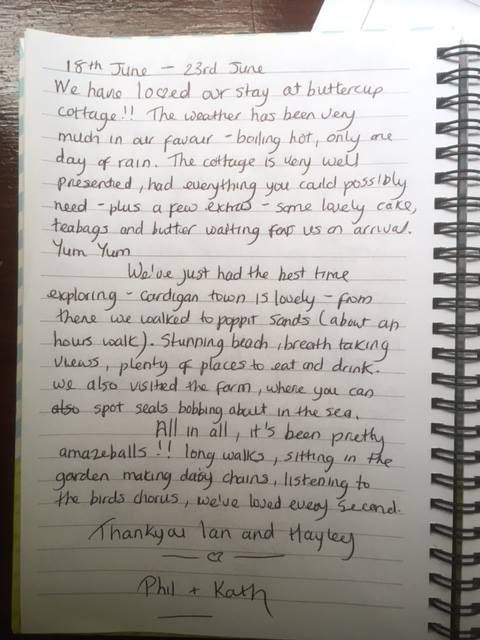 18th June - 23rd June
We have loved our stay at buttercup
cottage!! The weather has been very
much in our favour - boiling hot, only one
day of rain. The cottage is very well
presented, had everything you could possibly
need - plus a few extras - some lovely cake,
teabags and butter waiting for us on arrival.
Yum Yum
We've just had the best time
exploring - Cardigan town is lovely - from
there we walked to poppit sands (about an
hours walk). Stunning beach, breath taking
views, plenty of places to eat and drink.
We also visited the farm, where you can
also spot seals bobbing about in the sea.
All in all, it's been pretty
amazeballs!! long walks, sitting in the
garden making daisy chains, listening to
the birds chorus, we've loved every second.
Thankyou Ian and Hayley
Phil + Kath